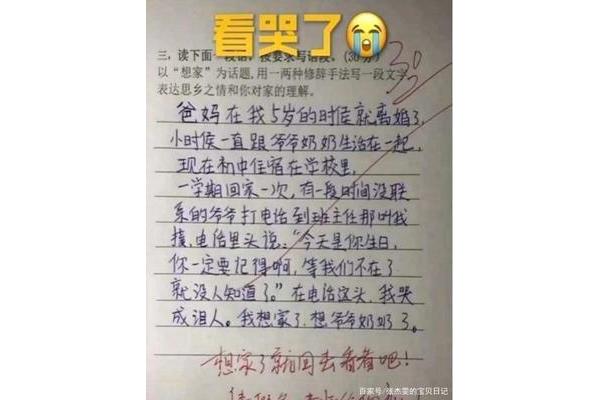 看哭了
三、读下面一段话，按要求写语段。(30分)
30
以“想家”为话题,用一两种修辞手法写一段文字
表达思乡之情和你对家的理解。
爸妈在我5岁的时侯就离婚了,
小时侯一直跟爷爷奶奶生活在一起,
现在初中住宿在学校里,
一学期回家一次,有一段时间没联
系的爷爷打电话到班主任那叫我
接,电话里头说:“今天是你生日,
你一定要记得啊,等我们不在了
就没人知道了。”在电话这头,我哭
成泪人。我想家了,想爷爷奶奶了。
想家了就回去看看吧!
百家号/张杰雯的宝贝日记